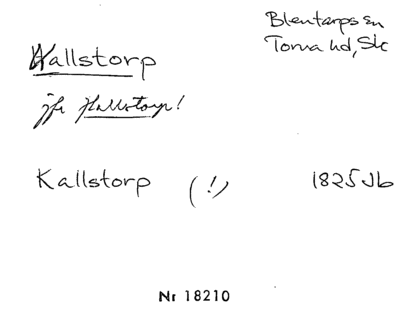 Blentarps sn
Torna hd, Sk
Kallstorp
jfr Hallstorp!
Kallstorp (!) 1825 Jb
Nr 18210